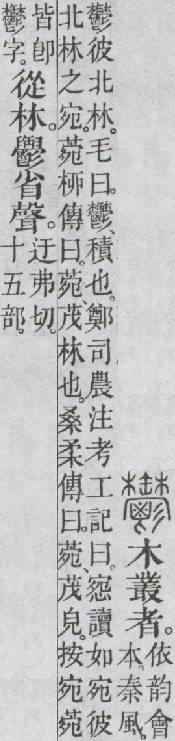 鬱木叢者。依韵會
本。秦風。
鬱彼北林。毛曰。鬱、積也。鄭司農注考工記曰。惌讀如宛彼
北林之宛。菀桺傳曰。菀、茂林也。桑柔傳曰。菀、茂皃。按宛菀
皆卽
鬱字。從林。𩰪省聲。迂弗切。
十五部。